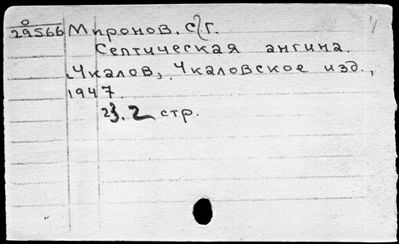 О
29566 Миронов, С. Г.
Септическая ангина.
Чкалов, Чкаловское изд.,
1947.
23. 2 стр.